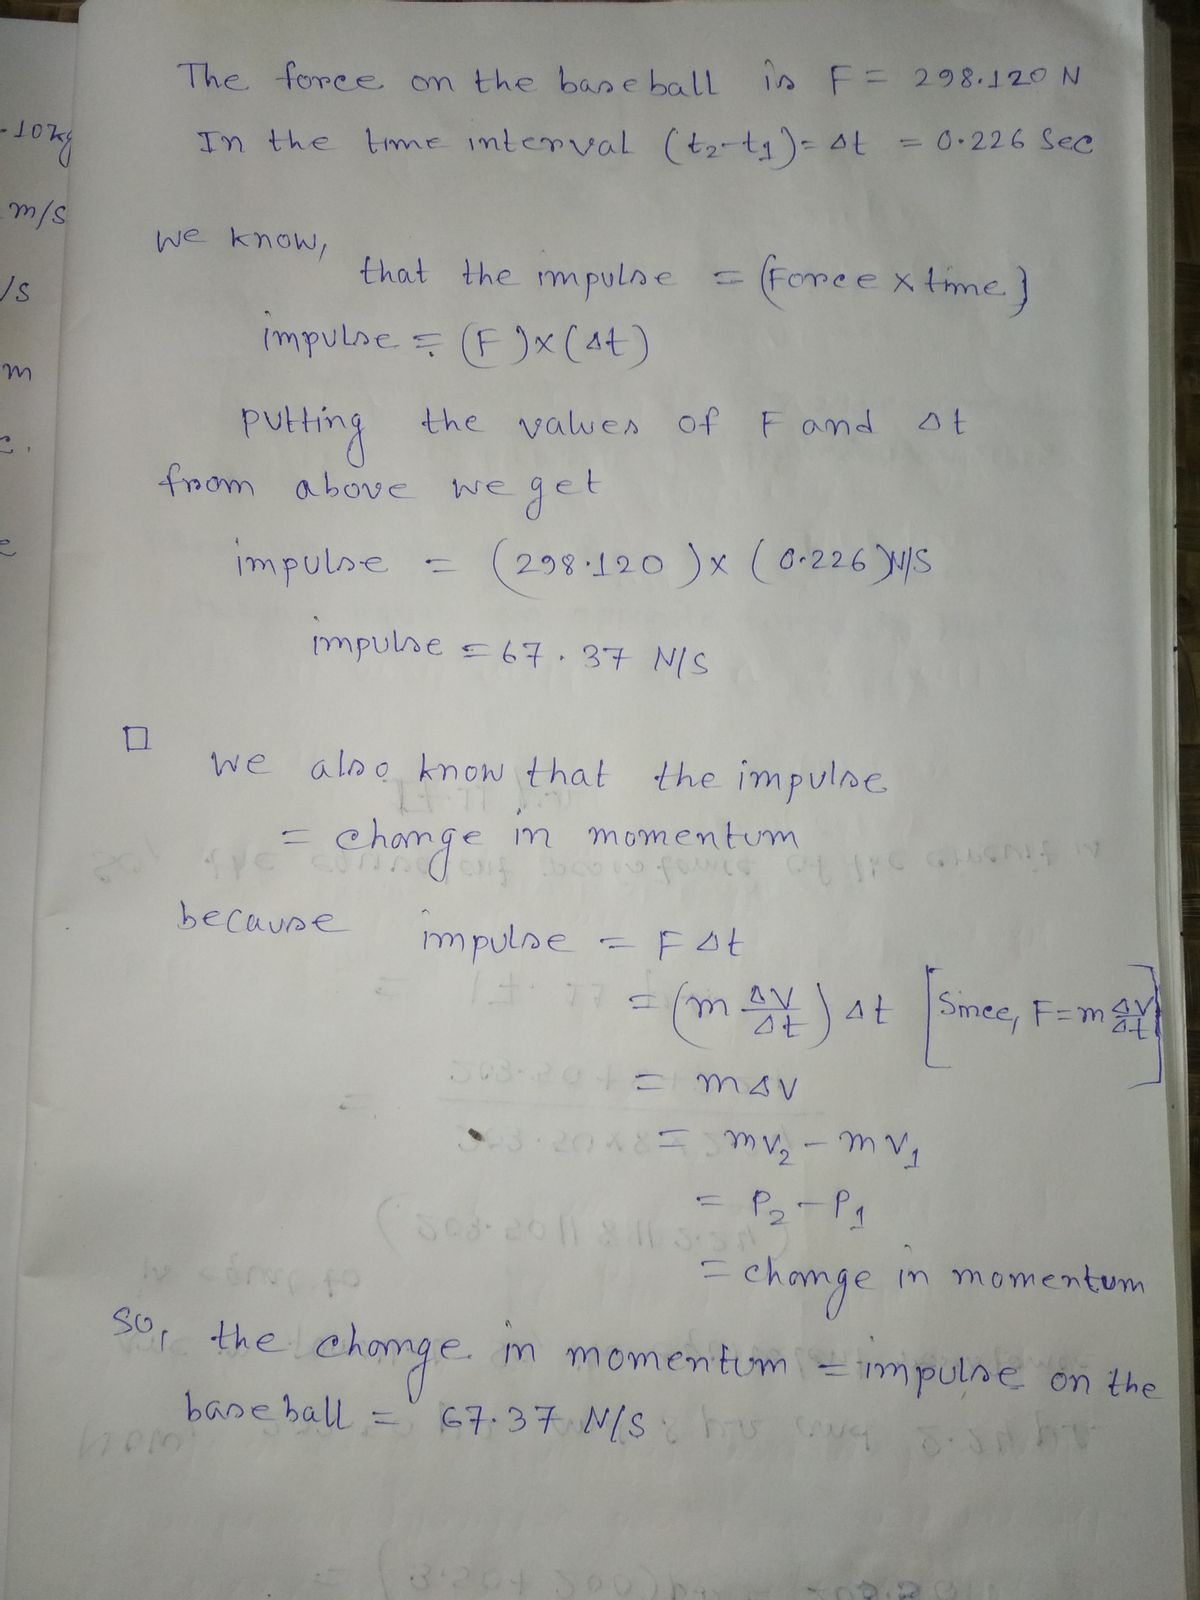 The force on the baseball is F = 298.120 N
-10kg
In the time interval (t₂-t₁)= Δt = 0.226 Sec
m/s
we know,
that the impulse = (Force x time)
/s
impulse = (F)x(Δt)
m
putting the values of F and Δt
from above we get
impulse = (298.120)x(0.226)N/S
impulse = 67.37 N/S
□ we also know that the impulse
= change in momentum
because impulse = FΔt
= (m ΔV/Δt) Δt [Since, F=m ΔV/Δt]
= mΔV
= mv₂ - mv₁
= P₂ - P₁
= change in momentum
so, the change in momentum = impulse on the
baseball = 67.37 N/S